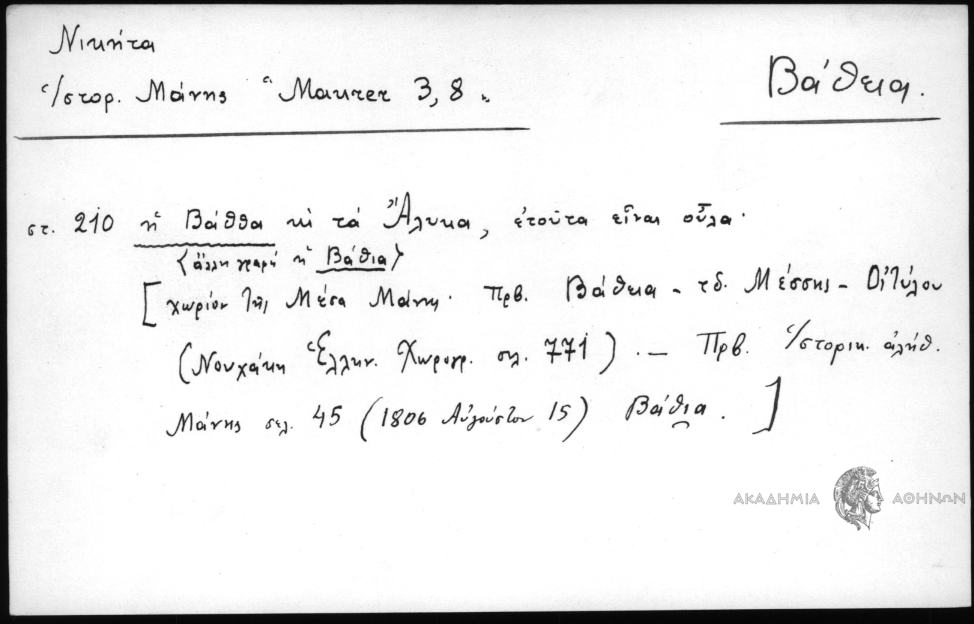 Νικήτα
Ἱστορ. Μάνης Maurer 3, 8.
Βάθεια.
στ. 210 ἡ Βάθθα κὶ τὰ Ἄλυκα, ἐτοῦτα εἶναι οὗλα·
<ἄλλη γραφὴ ἡ Βάθια>
[χωρίον τῆς Μέσα Μάνης· πρβ. Βάθεια - τδ. Μέσσης - Οἰτύλου
(Νουχάκη Ἑλλην. Χωρογρ. σελ. 771) . — Πρβ. Ἱστορικ. ἀλήθ.
Μάνης σελ. 45 (1806 Αὐγούστου 15) Βάθια . ]
ΑΚΑΔΗΜΙΑ ΑΘΗΝΩΝ